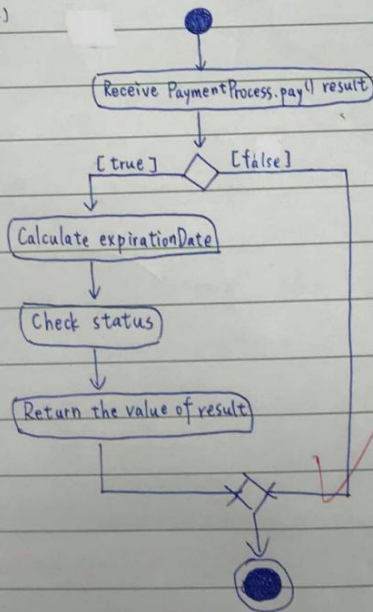 Receive PaymentProcess.pay() result
[true] [false]
Calculate expirationDate
Check status
Return the value of result